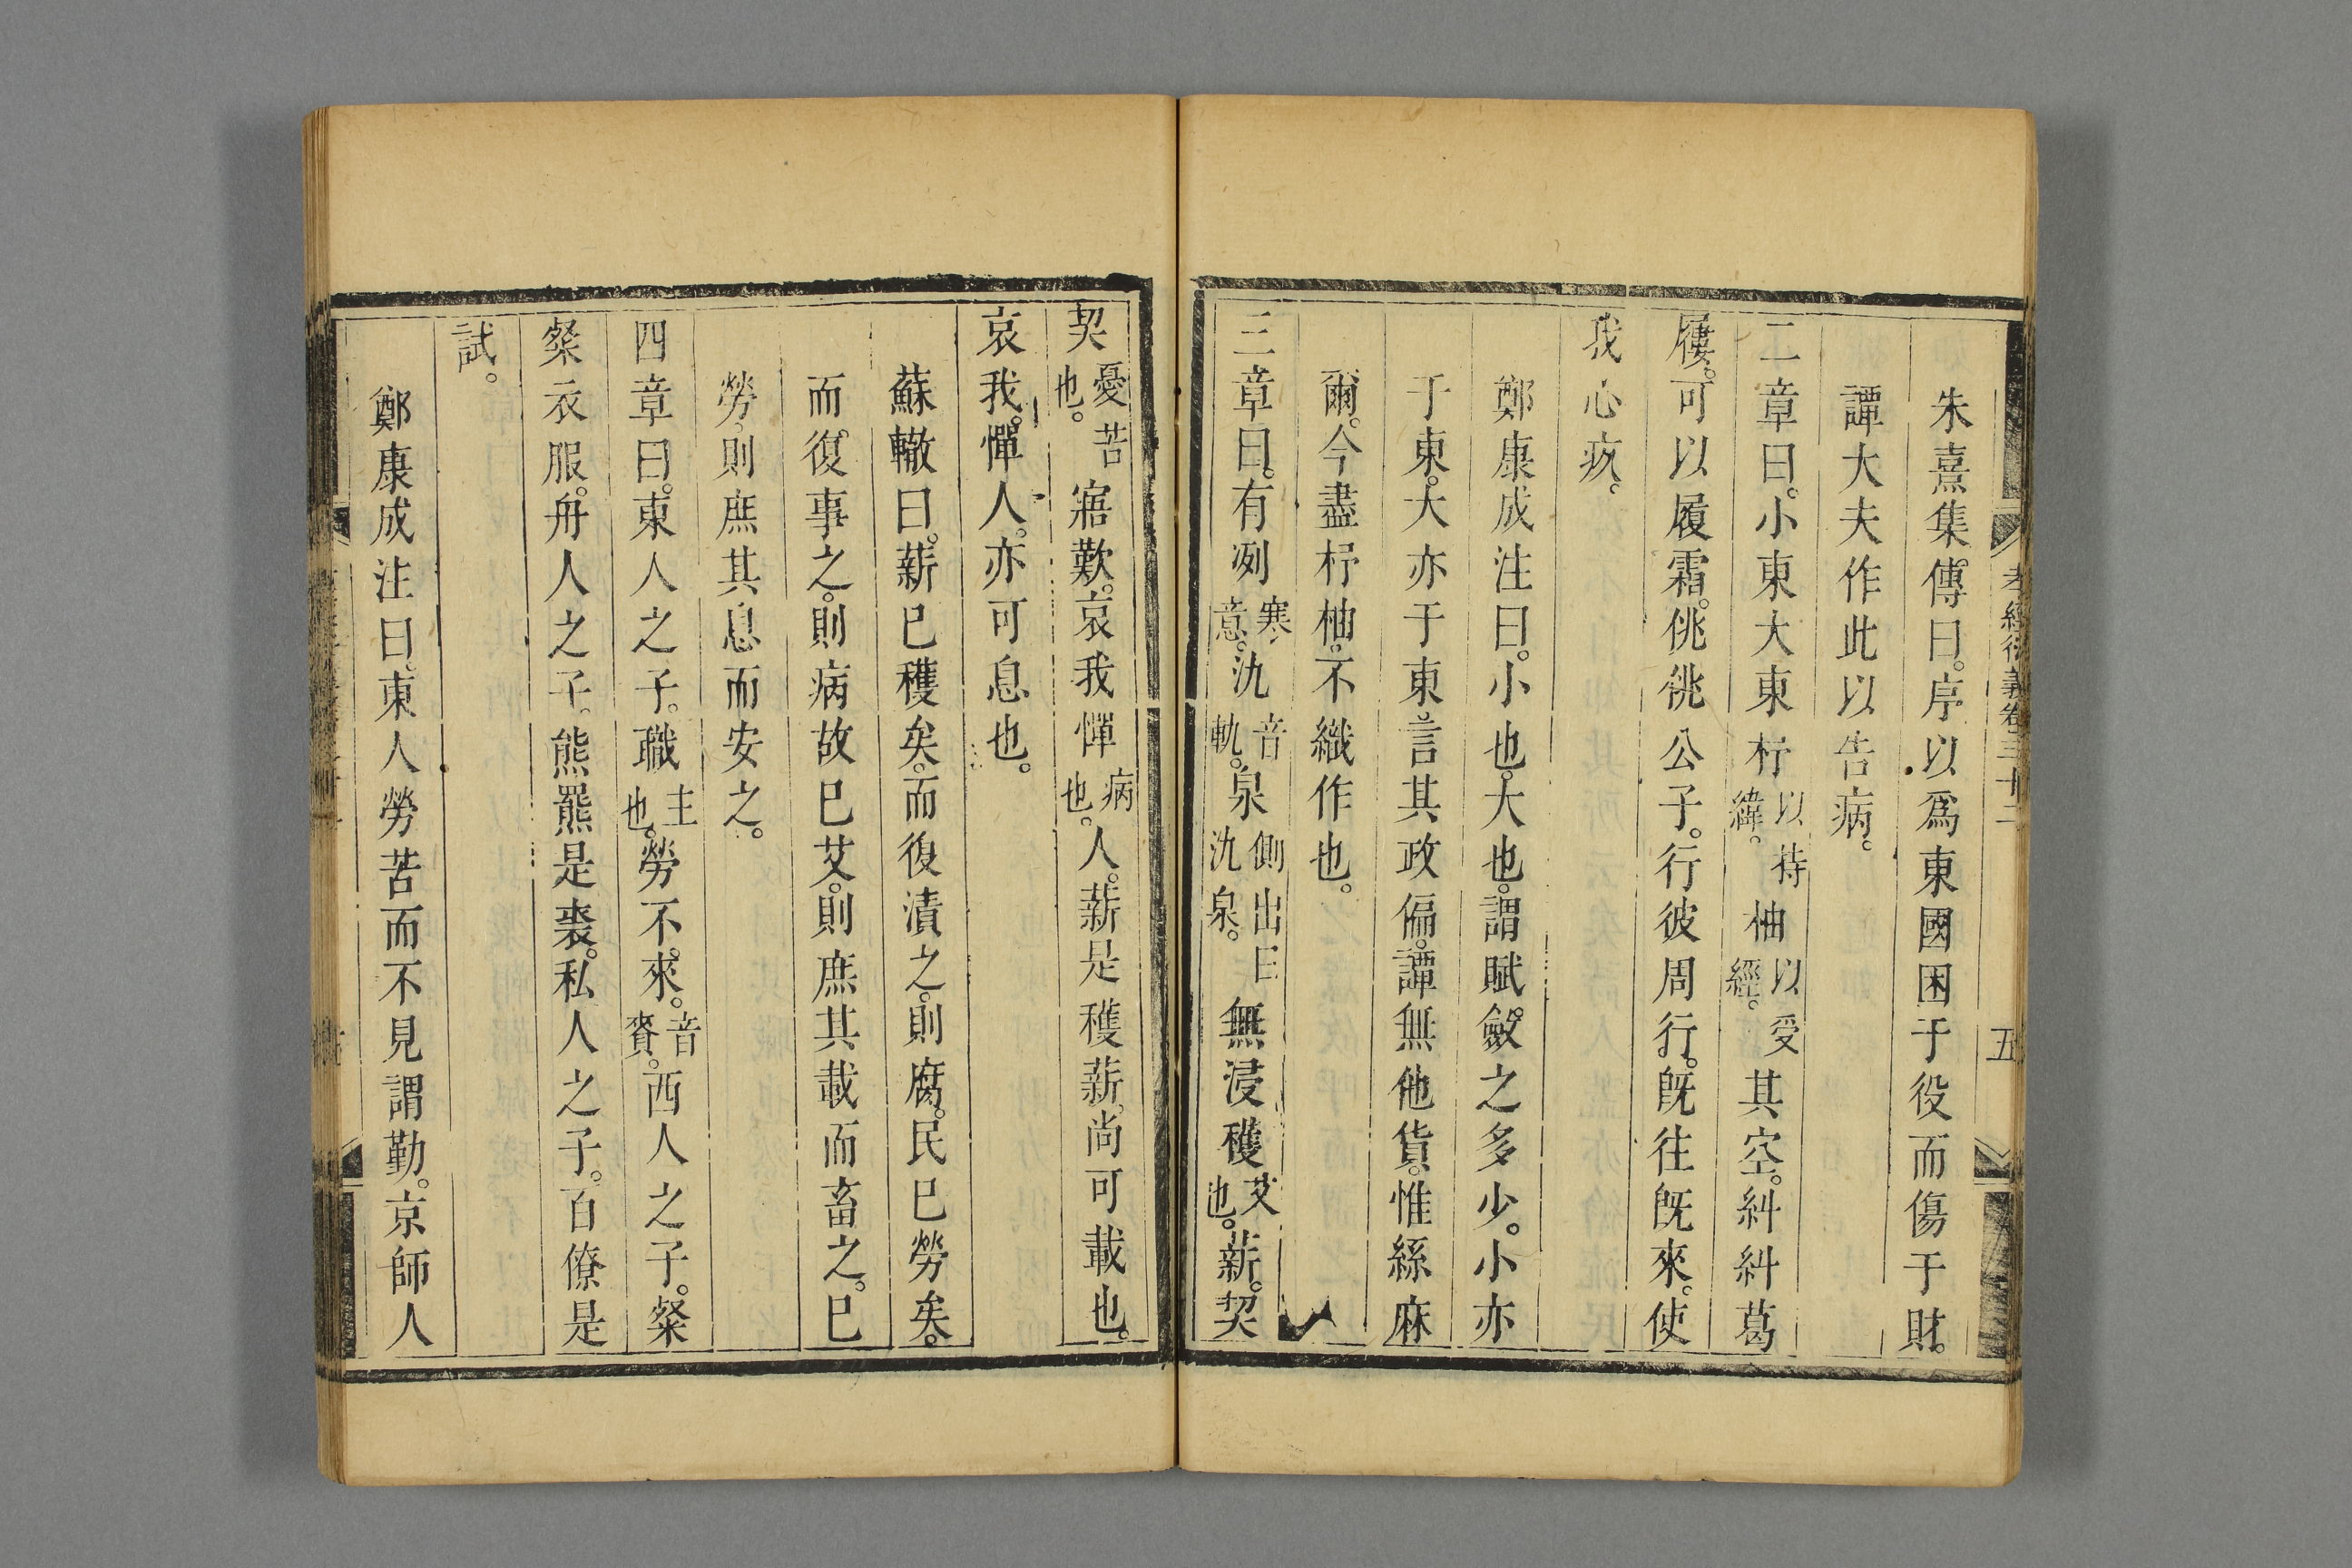 朱熹集傳曰。序。以爲東國困于役而傷于財。
譚大夫作此以告病。
二章曰。小東大東杼以持緯。柚以受經。其空。糾糾葛
屨。可以履霜。佻佻公子。行彼周行。旣往旣來。使
我心疚。
鄭康成注曰。小也。大也。謂賦斂之多少。小亦
于東。大亦于東。言其政偏。譚無他貨。惟絲麻
爾。今盡杼柚。不織作也。
三章曰。有冽寒意。氿音軌。泉側出曰氿泉。無浸穫艾也。薪。契
契憂苦也。寤歎。哀我憚病也。人。薪是穫薪。尚可載也。
哀我憚人。亦可息也。
蘇轍曰。薪已穫矣。而復漬之。則腐。民已勞矣。
而復事之。則病。故已艾。則庶其載而畜之。已
勞。則庶其息而安之。
四章曰。東人之子。職主也。勞不來。音賚。西人之子。粲
粲衣服。舟人之子。熊羆是裘。私人之子。百僚是
試。
鄭康成注曰。東人勞苦而不見謂勤。京師人
孝經衍義卷三十二
五